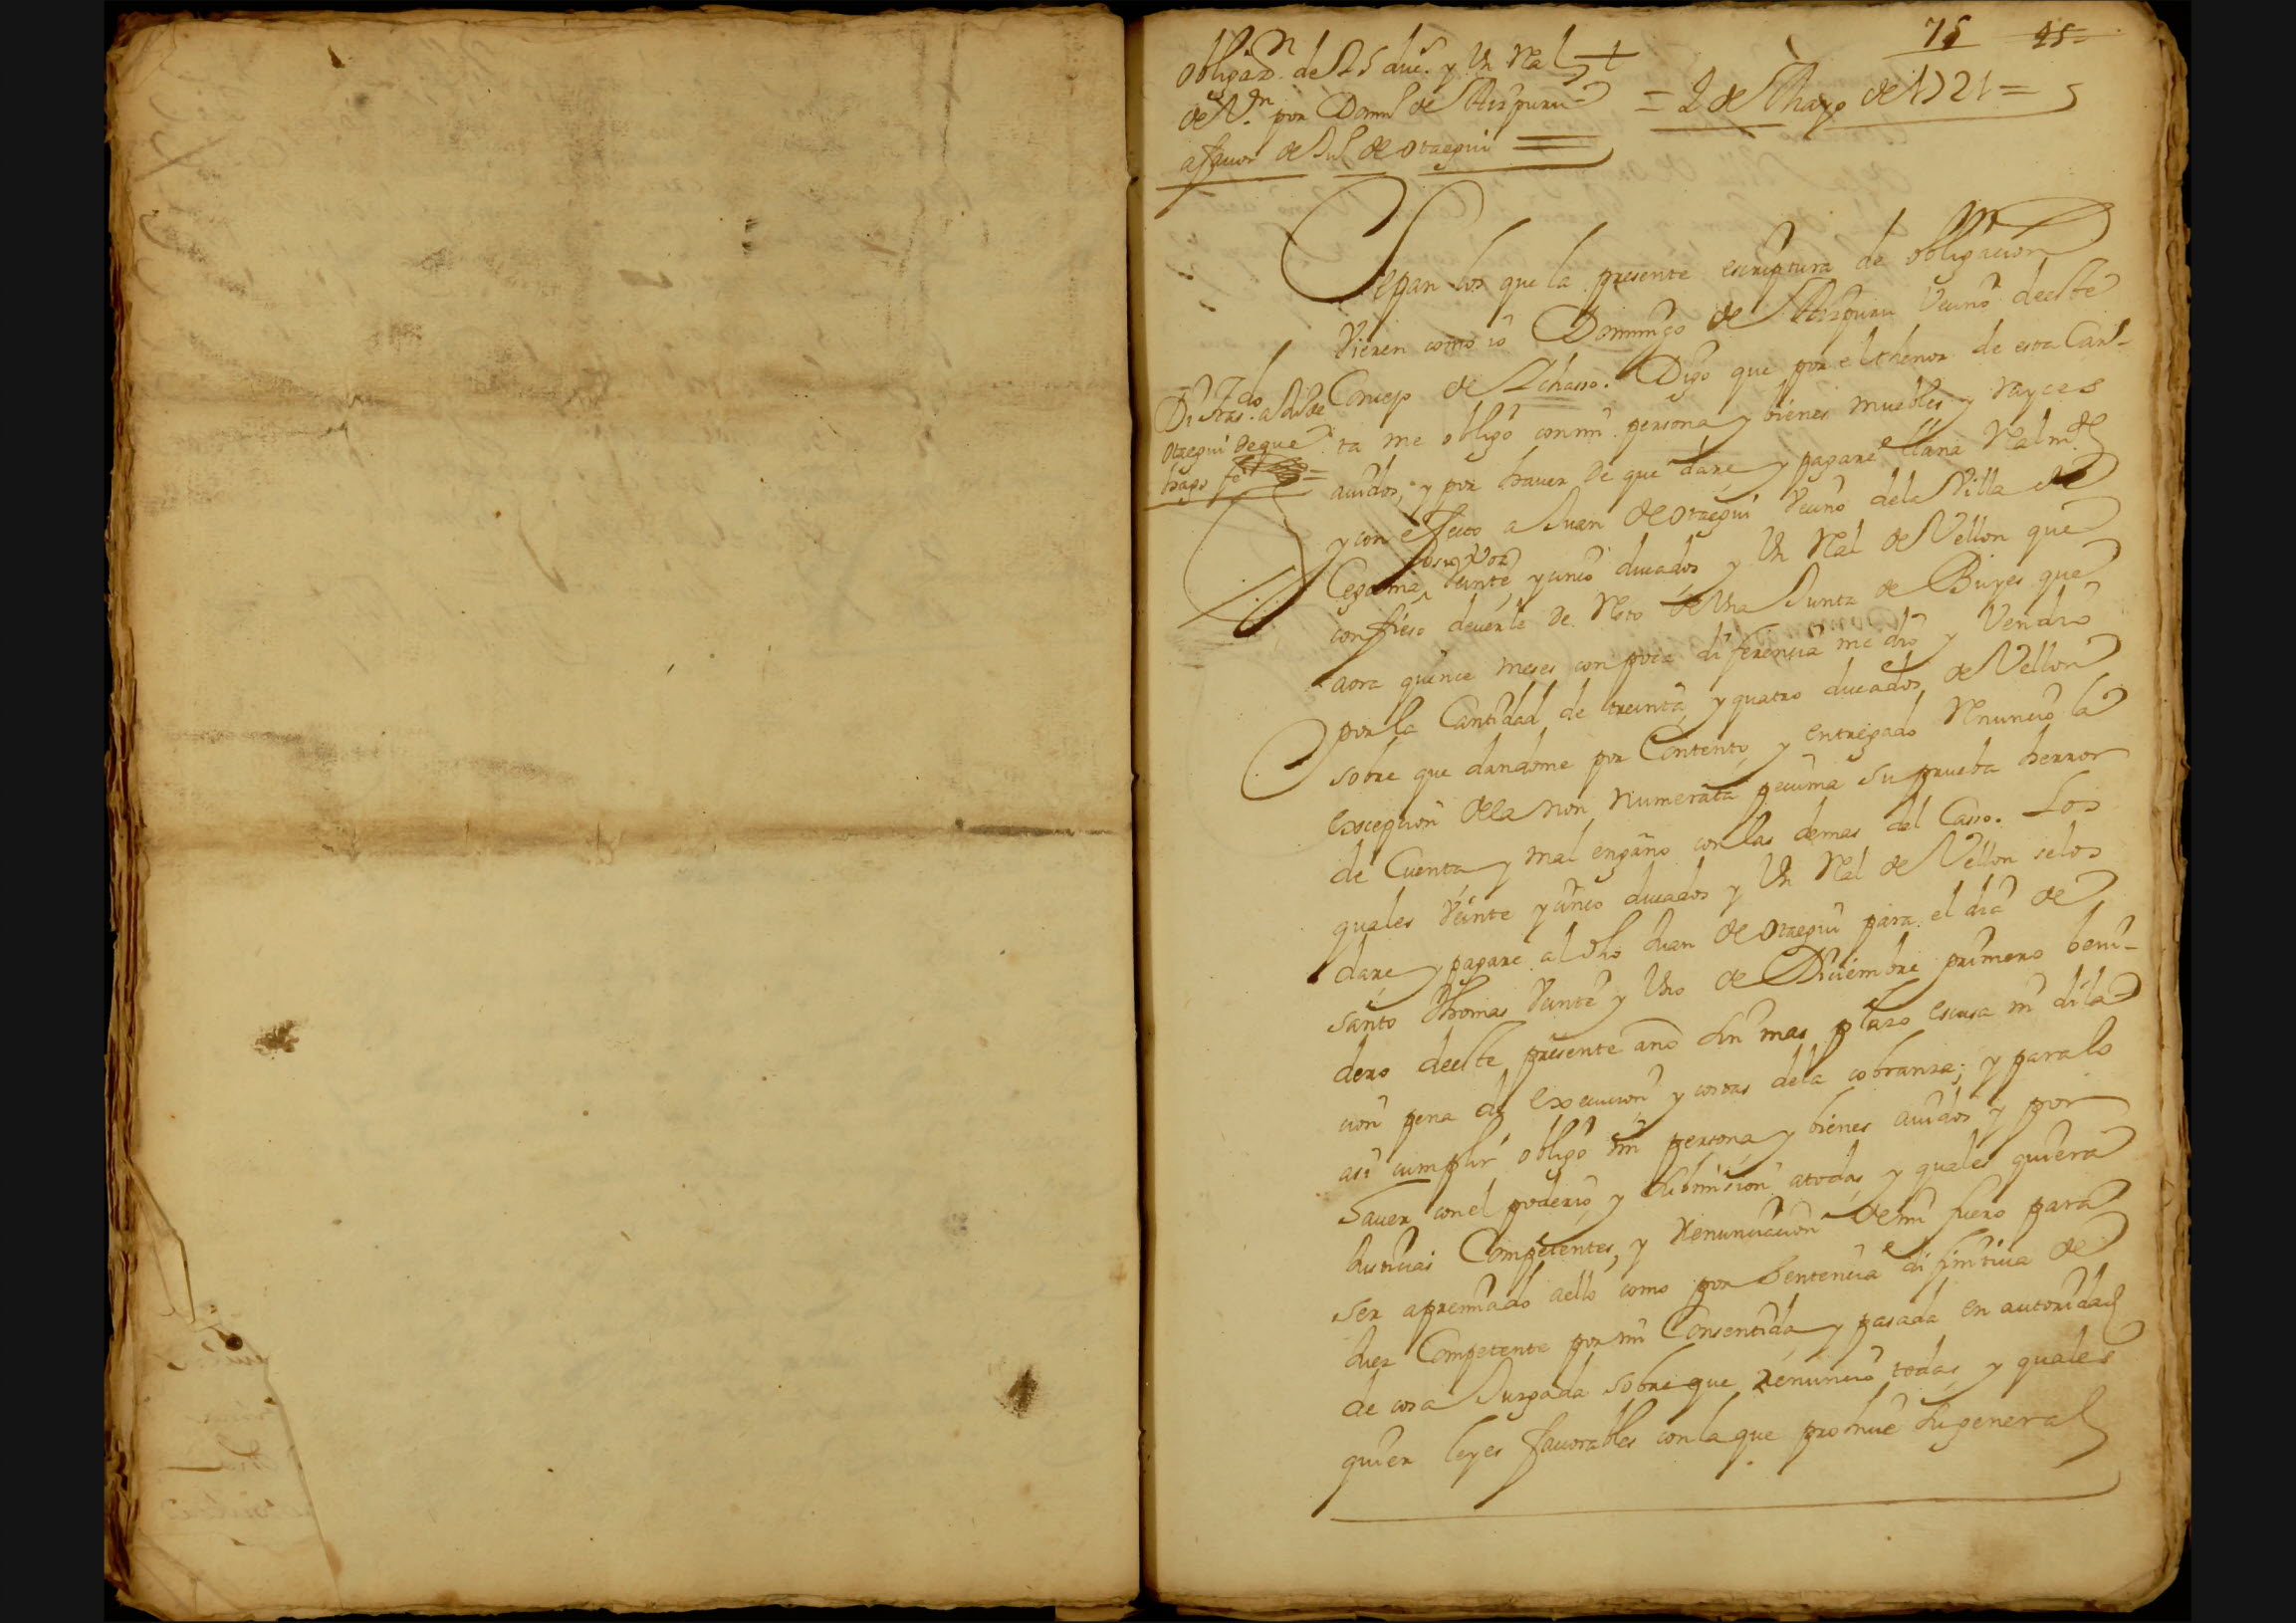 75 25
Obligaz.n de 25 duc.s y Un Real
de V.n por Dom.o de Aizpuru
a fauor de Ju.o de otaegui
= 2 de Mayo de 1721 =
Sepan los que la presente escriptura de obligacion
Vieren como io Domingo de Aizpuru Vecino de este
Concejo de Ichasso. Digo que por el thenor de esta Car-
ta me obligo con mi persona y bienes muebles y rayces
auidos, y por hauer de que dare y pagare llana Realm.te
y con effecto a Juan de otaegui Vecino dela Villa de
Cegama, o su voz Veinte y cinco ducados y Un Real de Vellon que
confieso deuerle de Resto de Una Junta de Bueyes que
aora quince meses con poca diferencia me dio y Vendio
por la Cantidad de treinta y quatro ducados de Vellon
sobre que dandome por Contento, y entregado Renuncio la
excepcion de la non numerata pecunia su prueba herror
de Cuenta y mal engaño con las demas del Casso. Los
quales Veinte y cinco ducados y Un Real de Vellon se los
dare y pagare al dho Juan de otaegui para el dia de
santo Thomas Veinte y Uno de Diciembre primero beni-
dero de este presente año sin mas plazo escusa ni dila
cion pena de execucion y costas dela cobranza; y para lo
asi cumplir obligo mi persona y bienes auidos y por
hauer con el poderio y submision a todas y quales quiera
Justicias Competentes, y Renunciacion de mi fuero para
ser apremiado aello como por sentencia difinitiua de
Juez Competente por mi Consentida y pasada en autoridad
de cosa Juzgada sobre que renuncio todas y quales
quier leyes fauorables con la que prohiue la general
Di tras.do a Ju.o de
Otaegui de que
hago fe